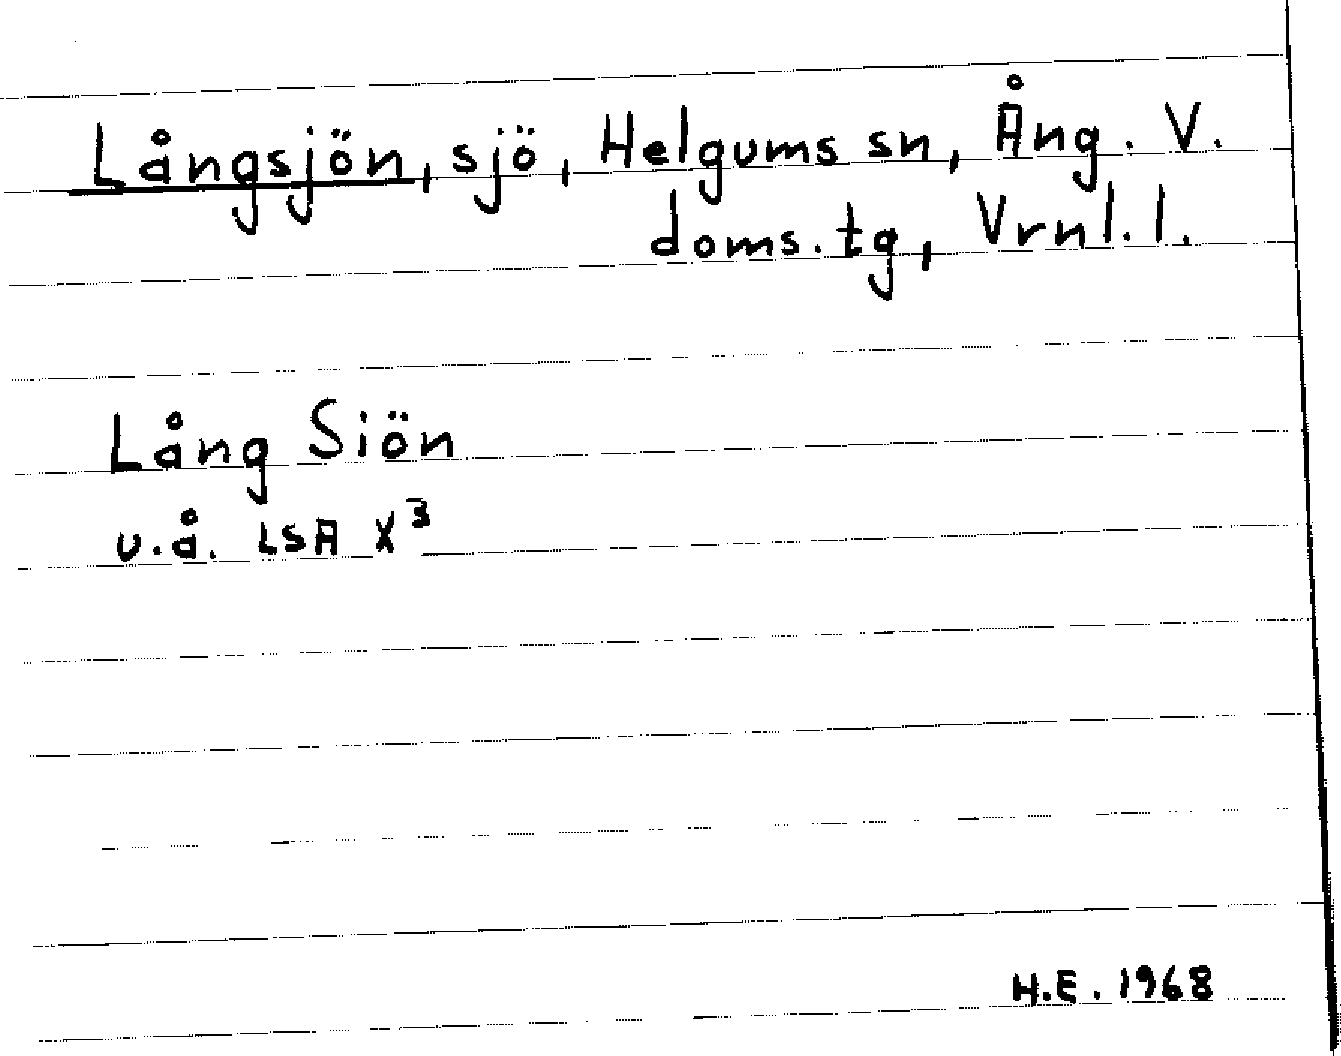 Långsjön, sjö, Helgums sn, Ång. V.
doms.tg, Vrnl. l.
Lång Siön
u.å. LSA X³
H.E. 1968